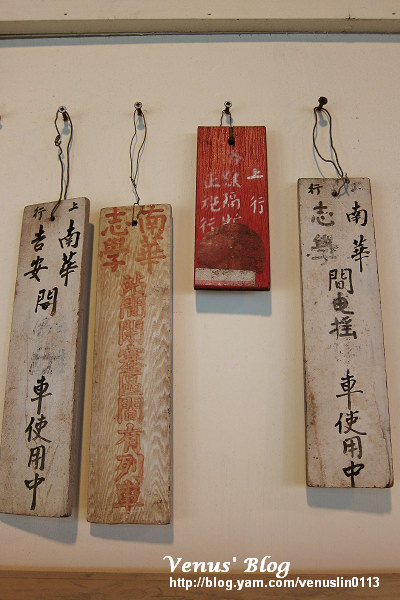 上行
南華
吉安
間
車使用中
南華
志學
站間閉塞區間有列車
上行
上行
南華
志學
間电搖
車使用中
Venus' Blog
http://blog.yam.com/venuslin0113